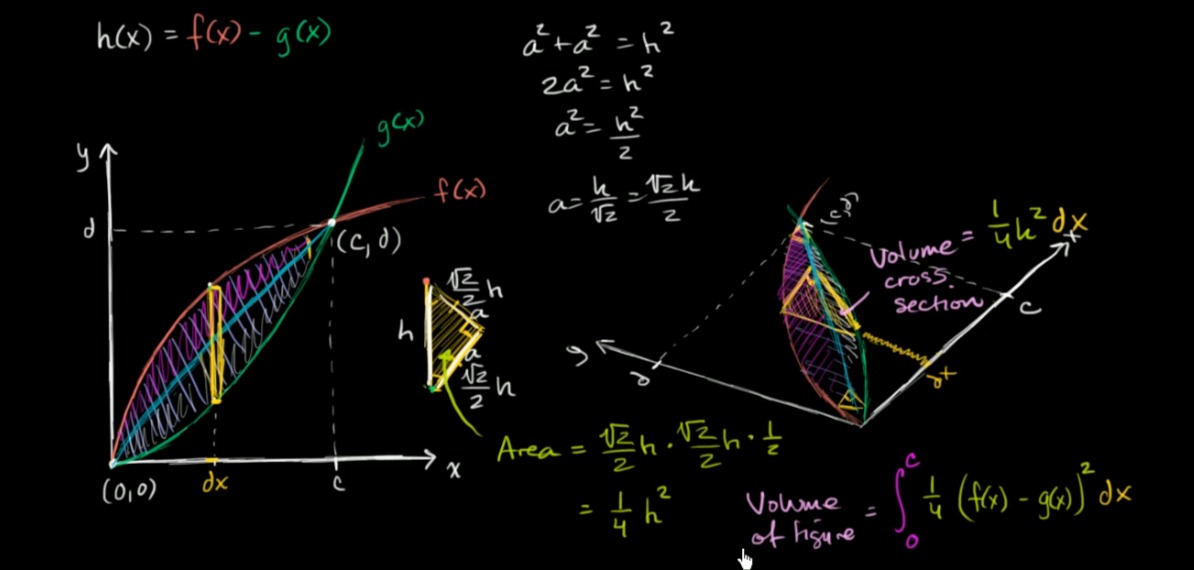 h(x) = f(x) - g(x)
a² + a² = h²
2a² = h²
a² = h²/2
a = h/√2 = √2h/2
y
g(x)
f(x)
d
(c, d)
(0,0)
dx
c
x
h
√2/2 h
a
a
√2/2 h
Area = √2/2 h · √2/2 h · 1/2
= 1/4 h²
Volume = 1/4 h² dx
cross.
section
x
c
dx
y
d
Volume
of figure = ∫₀ᶜ 1/4 (f(x) - g(x))² dx